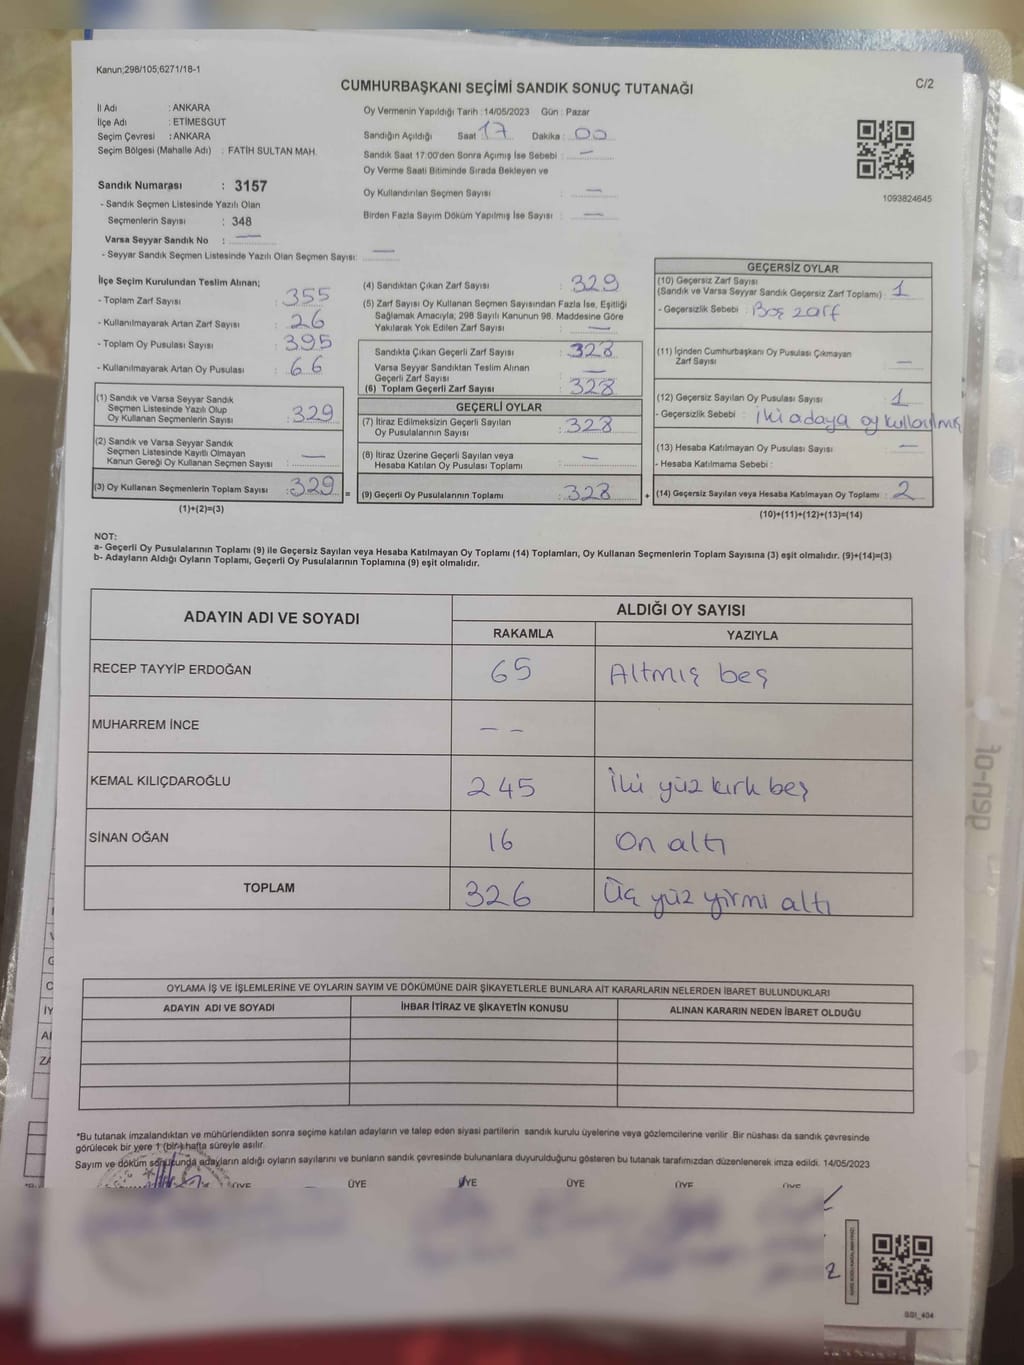 Kanun;298/105;6271/18-1
CUMHURBAŞKANI SEÇİMİ SANDIK SONUÇ TUTANAĞI
C/2
İl Adı : ANKARA
İlçe Adı : ETİMESGUT
Seçim Çevresi : ANKARA
Seçim Bölgesi (Mahalle Adı) : FATİH SULTAN MAH.
Sandık Numarası : 3157
- Sandık Seçmen Listesinde Yazılı Olan
Seçmenlerin Sayısı : 348
Varsa Seyyar Sandık No : —
- Seyyar Sandık Seçmen Listesinde Yazılı Olan Seçmen Sayısı: —
Oy Vermenin Yapıldığı Tarih : 14/05/2023 Gün : Pazar
Sandığın Açıldığı Saat 17 Dakika : 00
Sandık Saat 17:00'den Sonra Açımış İse Sebebi : —
Oy Verme Saati Bitiminde Sırada Bekleyen ve
Oy Kullandırılan Seçmen Sayısı : —
Birden Fazla Sayım Döküm Yapılmış İse Sayısı : —
1093824645
İlçe Seçim Kurulundan Teslim Alınan;
- Toplam Zarf Sayısı : 355
- Kullanılmayarak Artan Zarf Sayısı : 26
- Toplam Oy Pusulası Sayısı : 395
- Kullanılmayarak Artan Oy Pusulası : 66
(1) Sandık ve Varsa Seyyar Sandık
Seçmen Listesinde Yazılı Olup
Oy Kullanan Seçmenlerin Sayısı : 329
(2) Sandık ve Varsa Seyyar Sandık
Seçmen Listesinde Kayıtlı Olmayan
Kanun Gereği Oy Kullanan Seçmen Sayısı : —
(3) Oy Kullanan Seçmenlerin Toplam Sayısı : 329 =
(1)+(2)=(3)
(4) Sandıktan Çıkan Zarf Sayısı : 329
(5) Zarf Sayısı Oy Kullanan Seçmen Sayısından Fazla İse, Eşitliği
Sağlamak Amacıyla; 298 Sayılı Kanunun 98. Maddesine Göre
Yakılarak Yok Edilen Zarf Sayısı : —
Sandıkta Çıkan Geçerli Zarf Sayısı : 328
Varsa Seyyar Sandıktan Teslim Alınan
Geçerli Zarf Sayısı : —
(6) Toplam Geçerli Zarf Sayısı : 328
GEÇERLİ OYLAR
(7) İtiraz Edilmeksizin Geçerli Sayılan
Oy Pusulalarının Sayısı : 328
(8) İtiraz Üzerine Geçerli Sayılan veya
Hesaba Katılan Oy Pusulası Toplamı : —
(9) Geçerli Oy Pusulalarının Toplamı : 328 +
GEÇERSİZ OYLAR
(10) Geçersiz Zarf Sayısı
(Sandık ve Varsa Seyyar Sandık Geçersiz Zarf Toplamı) : 1
- Geçersizlik Sebebi : Boş zarf
(11) İçinden Cumhurbaşkanı Oy Pusulası Çıkmayan
Zarf Sayısı : —
(12) Geçersiz Sayılan Oy Pusulası Sayısı : 1
- Geçersizlik Sebebi : İki adaya oy kullanılmış
(13) Hesaba Katılmayan Oy Pusulası Sayısı : —
- Hesaba Katılmama Sebebi :
(14) Geçersiz Sayılan veya Hesaba Katılmayan Oy Toplamı : 2
(10)+(11)+(12)+(13)=(14)
NOT:
a- Geçerli Oy Pusulalarının Toplamı (9) ile Geçersiz Sayılan veya Hesaba Katılmayan Oy Toplamı (14) Toplamları, Oy Kullanan Seçmenlerin Toplam Sayısına (3) eşit olmalıdır. (9)+(14)=(3)
b- Adayların Aldığı Oyların Toplamı, Geçerli Oy Pusulalarının Toplamına (9) eşit olmalıdır.
ADAYIN ADI VE SOYADI
ALDIĞI OY SAYISI
RAKAMLA YAZIYLA
RECEP TAYYİP ERDOĞAN 65 Altmış beş
MUHARREM İNCE — —
KEMAL KILIÇDAROĞLU 245 İki yüz kırk beş
SİNAN OĞAN 16 On altı
TOPLAM 326 Üç yüz yirmi altı
OYLAMA İŞ VE İŞLEMLERİNE VE OYLARIN SAYIM VE DÖKÜMÜNE DAİR ŞİKAYETLERLE BUNLARA AİT KARARLARIN NELERDEN İBARET BULUNDUKLARI
ADAYIN ADI VE SOYADI İHBAR İTİRAZ VE ŞİKAYETİN KONUSU ALINAN KARARIN NEDEN İBARET OLDUĞU
*Bu tutanak imzalandıktan ve mühürlendikten sonra seçime katılan adayların ve talep eden siyasi partilerin sandık kurulu üyelerine veya gözlemcilerine verilir. Bir nüshası da sandık çevresinde
görülecek bir yere 1 (bir) hafta süreyle asılır.
Sayım ve döküm sonucunda adayların aldığı oyların sayılarını ve bunların sandık çevresinde bulunanlara duyurulduğunu gösteren bu tutanak tarafımızdan düzenlenerek imza edildi. 14/05/2023
ÜYE ÜYE ÜYE ÜYE ÜYE ÜYE